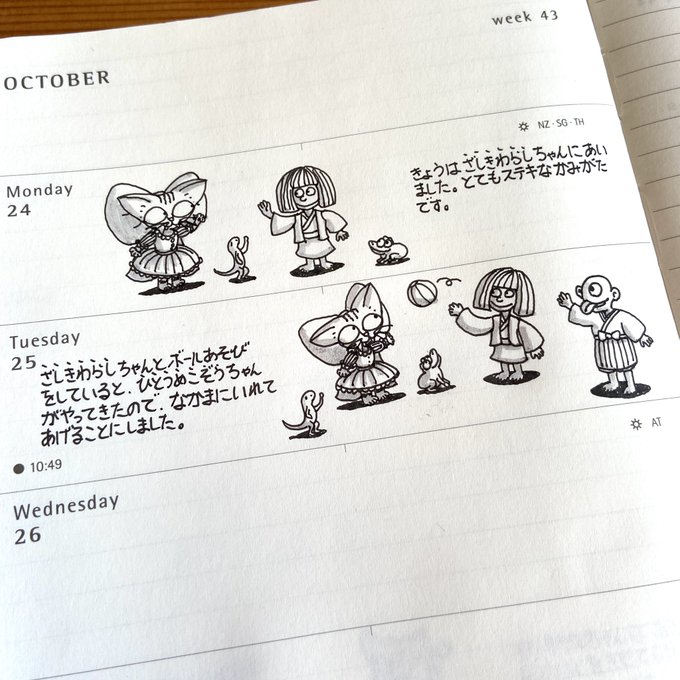 week 43
OCTOBER
NZ·SG·TH
Monday
24
きょうは ざしきわらしちゃんにあい
ました。とてもステキなかみがた
です。
Tuesday
25
ざしきわらしちゃんと、ボールあそび
をしていると、ひとつめこぞうちゃん
がやってきたので、なかまにいれて
あげることにしました。
10:49
AT
Wednesday
26